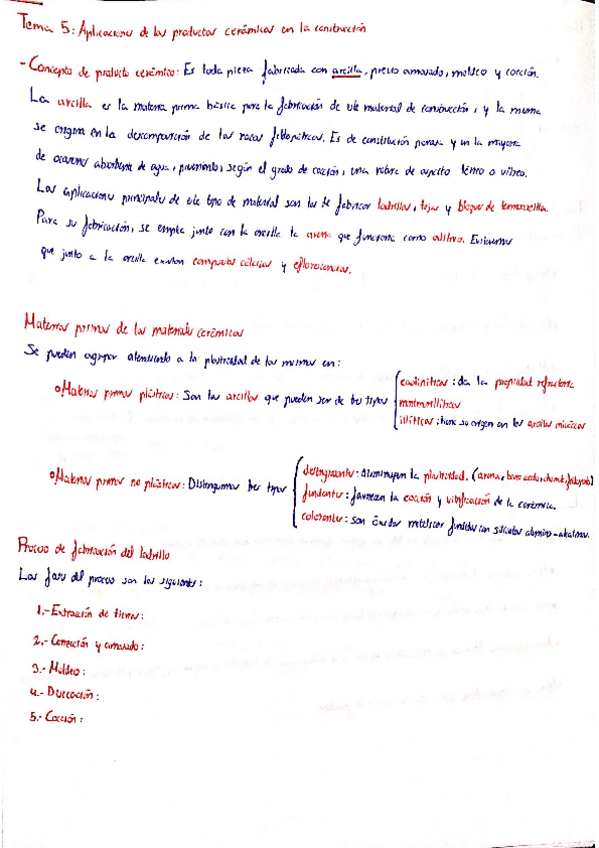 Tema 5: Aplicaciones de los productos cerámicos en la construcción
- Concepto de producto cerámico: Es toda pieza fabricada con arcilla, previo amasado, moldeo y cocción.
La arcilla es la materia prima básica para la fabricación de este material de construcción, y la misma
se origina en la descomposición de las rocas feldespáticas. Es de constitución porosa y en la mayoría
de ocasiones absorbente de agua, presentando, según el grado de cocción, una rotura de aspecto térreo o vítreo.
Las aplicaciones principales de este tipo de material son las de fabricar ladrillos, tejas y bloques de termoarcilla.
Para su fabricación, se emplea junto con la arcilla la arena que funciona como aditivo. Evitaremos
que junto a la arcilla existan compuestos cálcicos y eflorescencias.
Materias primas de los materiales cerámicos
Se pueden agrupar atendiendo a la plasticidad de las mismas en:
Materias primas plásticas: Son las arcillas que pueden ser de tres tipos
caoliníticas: da la propiedad refractaria
montmorilloníticas
illíticas: tiene su origen en las arcillas micáceas
Materias primas no plásticas: Distinguimos tres tipos
desengrasantes: disminuyen la plasticidad. (arena,
fundentes: favorecen la cocción y vitrificación de la cerámica.
colorantes: son óxidos metálicos fundidos con silicatos alumino-alcalinos.
Proceso de fabricación del ladrillo
Las fases del proceso son las siguientes:
1.- Extracción de tierras:
2.- Corrección y amasado:
3.- Moldeo:
4.- Desecación:
5.- Cocción: